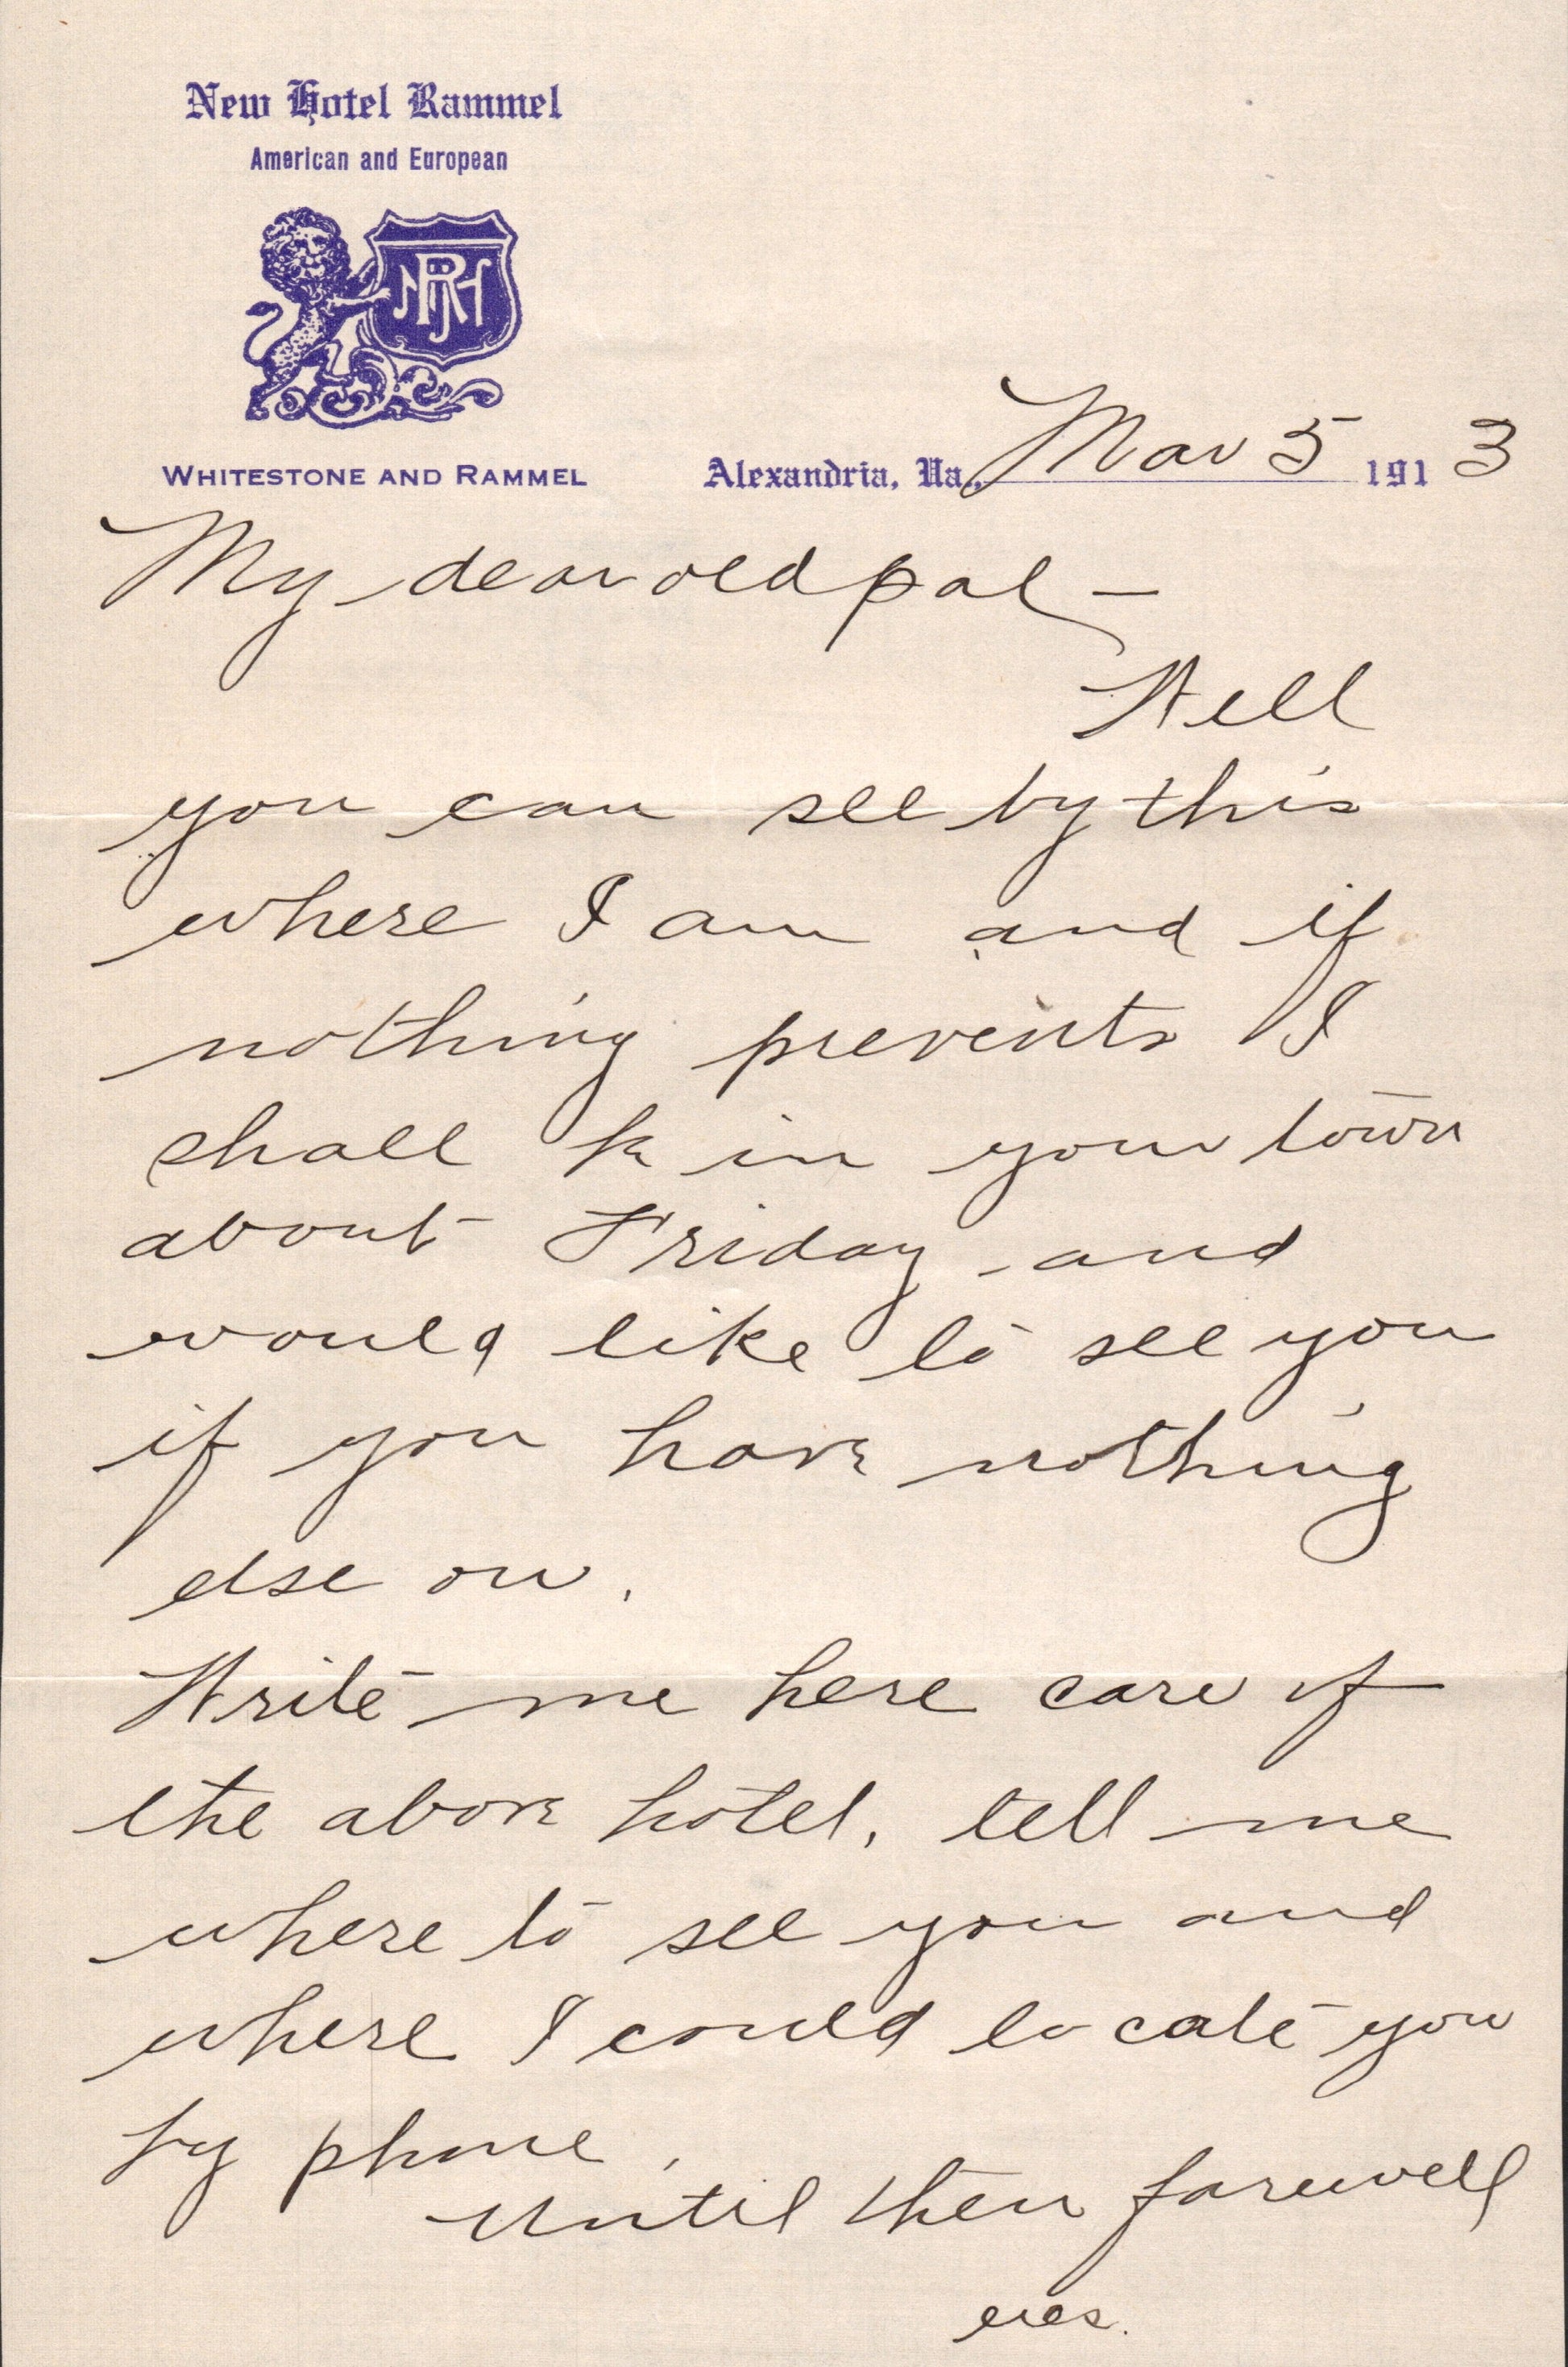 New Hotel Rammel
American and European
NRH
WHITESTONE AND RAMMEL
Alexandria, Va., Mar 5 1913
My dear old pal —
Well
you can see by this
where I am and if
nothing prevents I
shall be in your town
about Friday - and
would like to see you
if you have nothing
else on.
Write me here care of
the above hotel, tell me
where to see you and
where I could locate you
by phone,
Until then farewell